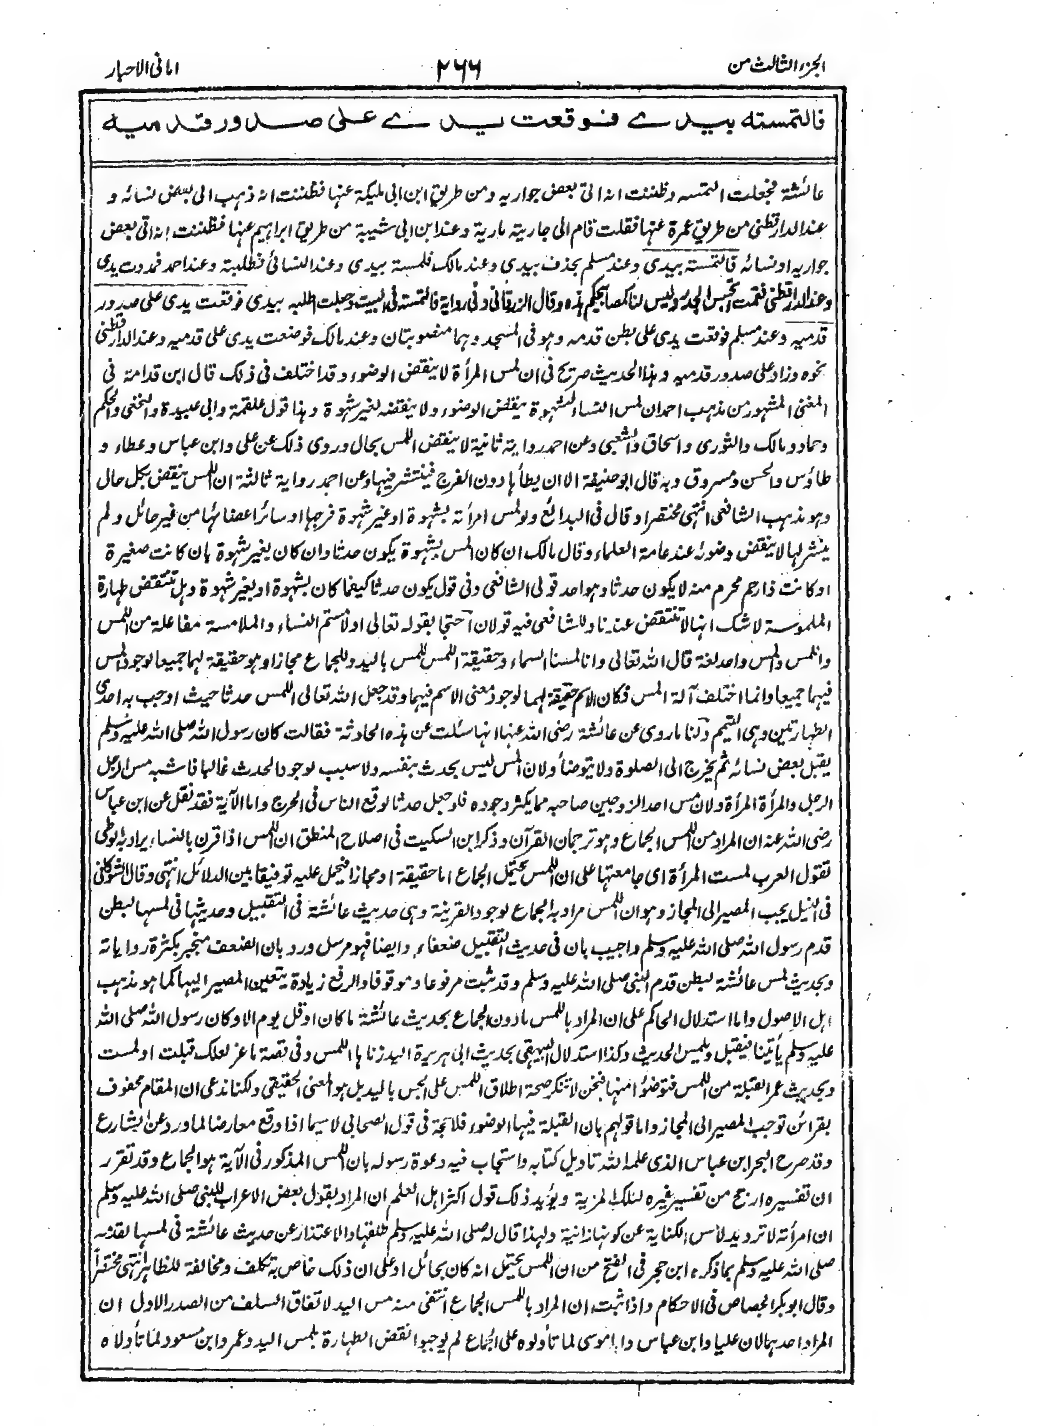 الجزء الثالث من
۲۶۶
امانی الاحبار
فالتمسته بیدے فوقعت یدے علی صدور قدمیه
عائشة فجعلت التمسه وظننت انه اتی بعض جواریه ومن طریق ابن ابی ملیکة عنها فظننت انه ذهب الی بعض نسائه و
عند الدارقطنی من طریق عمرة عنها فقلت قام الی جاریته ماریة وعند ابن ابی شیبة من طریق ابراهیم عنها فظننت انه اتی بعض
جواریه او نسائه فالتمسته بیدی وعند مسلم بحذف بیدی وعند مالک فلمسته بیدی وعند النسائی فطلبته وعند احمد فمددت یدی
وعند الدارقطنی فقمت الجدر ولیس لنا کمصابیحکم هذه وقال الزرقانی وفی روایة فالتمسته فی البیت وجعلت اطلبه بیدی فوقعت یدی علی صدور
قدمیه وعند مسلم فوقعت یدی علی بطن قدمه وهو فی المسجد وهما منصوبتان وعند مالک فوضعت یدی علی قدمیه وعند الدارقطنی
نحوه وزاد علی صدور قدمیه وهذا الحدیث صریح فی ان لمس المرأة لا ینقض الوضوء وقد اختلف فی ذلک قال ابن قدامة فی
المغنی المشهور من مذهب احمد ان لمس النساء لشهوة ینقض الوضوء ولا ینقضه لغیر شهوة وهذا قول علقمة وابی عبیدة والنخعی والحکم
وحماد ومالک والثوری واسحاق والشعبی وعن احمد روایة ثانیة لا ینقض اللمس بحال وروی ذلک عن علی وابن عباس وعطاء و
طاؤس والحسن ومسروق وبه قال ابو حنیفة الا ان یطأها دون الفرج فینتشر فیها وعن احمد روایة ثالثة ان اللمس ینقض بکل حال
وهو مذهب الشافعی انتهی مختصرا وقال فی البدائع ولو لمس امرأته بشهوة او غیر شهوة فرجها او سائر اعضائها من غیر حائل ولم
ینشر لها لا ینقض وضوئه عند عامة العلماء وقال مالک ان کان المس بشهوة یکون حدثا وان کان بغیر شهوة بان کانت صغیرة
او کانت ذا رحم محرم منه لا یکون حدثا وهو احد قولی الشافعی وفی قول یکون حدثا کیفما کان بشهوة او بغیر شهوة وهل تنتقض طهارة
الملموسة لا شک انها لا تنتقض عندنا وللشافعی فیه قولان احتجا بقوله تعالی اولامستم النساء والملامسة مفاعلة من اللمس
واللمس والمس واحد لغة قال الله تعالی وانا لمسنا السماء وحقیقة اللمس للمس بالید وللجماع مجازا وهو حقیقة لهما جمیعا لوجود المس
فیهما جمیعا وانما اختلف آلة المس فکان الاسم حقیقة لهما لوجود معنی الاسم فیهما وقد جعل الله تعالی اللمس حدثا حیث اوجب به احدی
الطهارتین وهی التیمم ولنا ما روی عن عائشة رضی الله عنها انها سئلت عن هذه الحادثة فقالت کان رسول الله صلی الله علیه وسلم
یقبل بعض نسائه ثم یخرج الی الصلوة ولا یتوضأ ولان المس لیس بحدث بنفسه ولا سبب لوجود الحدث غالبا فاشبه مس الرجل
الرجل والمرأة المرأة ولان مس احد الزوجین صاحبه مما یکثر وجوده فلو جعل حدثا لوقع الناس فی الحرج واما الآیة فقد نقل عن ابن عباس
رضی الله عنه ان المراد من اللمس الجماع وهو ترجمان القرآن وذکر ابن السکیت فی اصلاح المنطق ان اللمس اذا قرن بالنساء یراد به الوطی
تقول العرب لمست المرأة ای جامعتها علی ان اللمس یحتمل الجماع اما حقیقة او مجازا فیحمل علیه توفیقا بین الدلائل انتهی وقال الشوکانی
فی النیل یجب المصیر الی المجاز وهو ان اللمس مراد به الجماع لوجود القرینة وهی حدیث عائشة فی التقبیل وحدیثها فی لمسها لبطن
قدم رسول الله صلی الله علیه وسلم واجیب بان فی حدیث التقبیل ضعفاء وایضا فهو مرسل ورد بان الضعف منجبر بکثرة روایاته
وبحدیث لمس عائشة لبطن قدم النبی صلی الله علیه وسلم وقد ثبت مرفوعا وموقوفا والرفع زیادة یتعین المصیر الیها کما هو مذهب
اهل الاصول واما استدلال الحاکم علی ان المراد باللمس ما دون الجماع بحدیث عائشة ما کان او قل یوم الا وکان رسول الله صلی الله
علیه وسلم یأتینا فیقبل ویلمس الحدیث وکذا استدلال البیهقی بحدیث ابی هریرة الید زناها اللمس وفی قصة ماعز لعلک قبلت او لمست
وبحدیث عمر القبلة من اللمس فتوضؤا منها فنحن لا ننکر صحة اطلاق اللمس علی الجس بالید بل هو المعنی الحقیقی ولکنا ندعی ان المقام محفوف
بقرائن توجب المصیر الی المجاز واما قولهم بان القبلة فیها الوضوء فلا حجة فی قول الصحابی لا سیما اذا وقع معارضا لما ورد عن الشارع
وقد صرح البحر ابن عباس الذی علمه الله تاویل کتابه واستجاب فیه دعوة رسوله بان اللمس المذکور فی الآیة هو الجماع وقد تقرر
ان تفسیره ارجح من تفسیر غیره لتلک المزیة ویؤید ذلک قول اکثر اهل العلم ان المراد بقول بعض الاعراب للنبی صلی الله علیه وسلم
ان امرأته لا ترد ید لامس الکنایة عن کونها زانیة ولهذا قال له صلی الله علیه وسلم طلقها والاعتذار عن حدیث عائشة فی لمسها لقدمه
صلی الله علیه وسلم بما ذکره ابن حجر فی الفتح من ان اللمس یحتمل انه کان بحائل او علی ان ذلک خاص به تکلف ومخالفة للظاهر انتهی مختصراً
وقال ابو بکر الجصاص فی الاحکام واذا ثبت ان المراد باللمس الجماع انتفی منه مس الید لاتفاق السلف من الصدر الاول ان
المراد احدهما لان علیا وابن عباس وابا موسی لما تأولوه علی الجماع لم یوجبوا نقض الطهارة بلمس الید وعمر وابن مسعود لما تأولاه